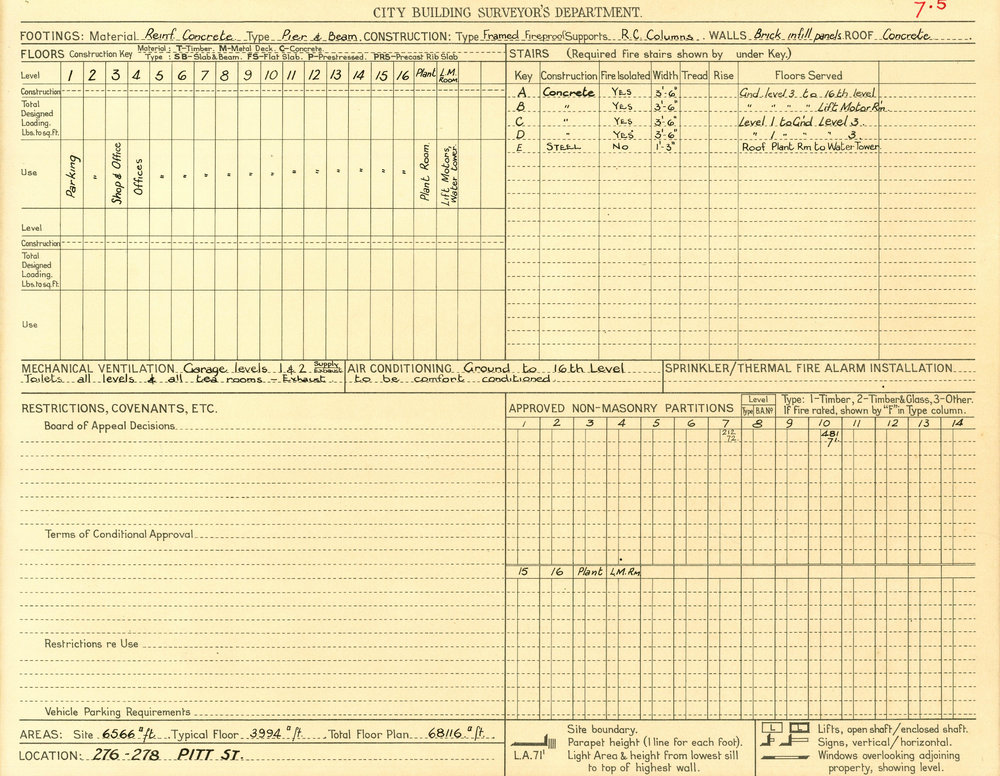 CITY BUILDING SURVEYOR'S DEPARTMENT.
7.5
FOOTINGS: Material Reinf Concrete Type Pier & Beam. CONSTRUCTION: Type Framed Fireproof Supports R.C. Columns. WALLS Brick infill panels. ROOF Concrete
FLOORS Construction Key Material: T-Timber. M-Metal Deck. C-Concrete.
Type: SB-Slab & Beam. FS-Flat Slab. P-Prestressed. PRS-Precast Rib Slab
Level 1 2 3 4 5 6 7 8 9 10 11 12 13 14 15 16 Plant L.M. Room.
Construction
Total Designed Loading. Lbs. to sq.ft.
Use Parking " Shop & Office Offices " " " " " " " " " " " " Plant Room. Lift Motors, Water tower.
Level
Construction
Total Designed Loading. Lbs. to sq.ft.
Use
STAIRS (Required fire stairs shown by under Key.)
Key Construction Fire Isolated Width Tread Rise Floors Served
A Concrete YES 3'-6" Gnd level 3 to 16th level
B " YES 3'-6" " " " " Lift Motor Rm
C " YES 3'-6" Level 1 to Gnd Level 3.
D " YES 3'-6" " 1 " " " 3.
E STEEL NO 1'-3" Roof Plant Rm to Water Tower
MECHANICAL VENTILATION. Garage levels 1 & 2 Supply Exhaust
Toilets all levels & all tea rooms - Exhaust
AIR CONDITIONING. Ground to 16th Level
to be comfort conditioned.
SPRINKLER/THERMAL FIRE ALARM INSTALLATION
RESTRICTIONS, COVENANTS, ETC.
Board of Appeal Decisions.
Terms of Conditional Approval
Restrictions re Use
Vehicle Parking Requirements
APPROVED NON-MASONRY PARTITIONS
Level
Type B.A.Nº
Type: 1-Timber, 2-Timber & Glass, 3-Other.
If fire rated, shown by "F" in Type column.
1 2 3 4 5 6 7 8 9 10 11 12 13 14
212 481
72 71
15 16 Plant L.M.Rm
AREAS: Site 6566 □'ft. Typical Floor 3994 □'ft. Total Floor Plan 68116 □'ft.
LOCATION: 276-278 PITT ST.
Site boundary.
Parapet height (1 line for each foot).
L.A. 71' Light Area & height from lowest sill
to top of highest wall.
L L Lifts, open shaft/enclosed shaft.
Signs, vertical/horizontal.
Windows overlooking adjoining
property, showing level.